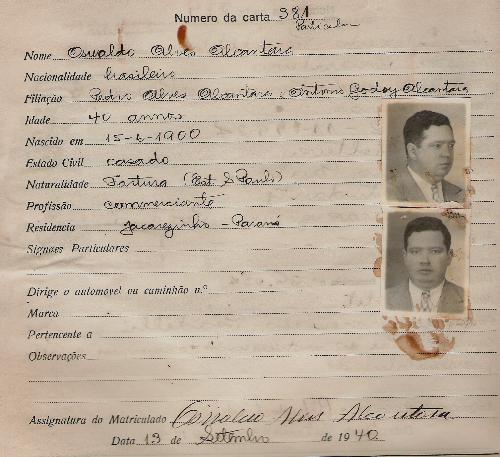 Numero da carta 981
Particular
Nome Oswaldo Alves Alcantára
Nacionalidade brasileiro
Filiação Pedro Alves Alcantára, Antonia Godoy Alcantara
Idade 40 annos
Nascido em 15-4-1900
Estado Civil casado
Naturalidade Fartura (Est. S Paulo)
Profissão commerciante
Residencia Jacarezinho - Paraná
Signaes Particulares
Dirige o automovel ou caminhão n.º
Marca
Pertencente a
Observações
Assignatura do Matriculado Oswaldo Alves Alcantara
Data 13 de Setembro de 1940